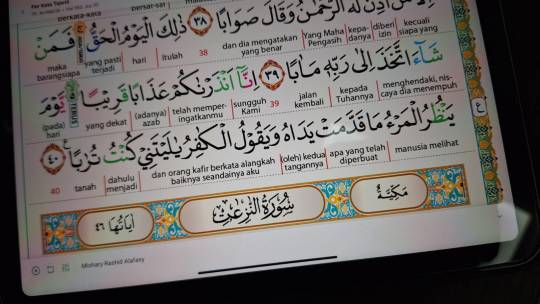 Per Kata Tajwid
perkata-kata
إِلَّا مَنْ أَذِنَ لَهُ الرَّحْمٰنُ وَقَالَ صَوَابًا ٣٨ ذٰلِكَ الْيَوْمُ الْحَقُّ فَمَنْ
kecuali siapa yang diberi izin kepadanya Yang Maha Pengasih dan dia mengatakan yang benar 38 itulah hari yang pasti terjadi maka barangsiapa
شَآءَ اتَّخَذَ إِلٰى رَبِّهٖ مَاٰبًا ٣٩ إِنَّآ أَنْذَرْنٰكُمْ عَذَابًا قَرِيْبًا يَّوْمَ
menghendaki, niscaya dia menempuh kepada Tuhannya jalan kembali 39 sungguh Kami telah memperingatkanmu (adanya) azab yang dekat (pada) hari
يَنْظُرُ الْمَرْءُ مَا قَدَّمَتْ يَدَاهُ وَيَقُوْلُ الْكٰفِرُ يٰلَيْتَنِيْ كُنْتُ تُرٰبًا ٤٠
manusia melihat apa yang telah diperbuat (oleh) kedua tangannya dan orang kafir berkata alangkah baiknya seandainya aku dahulu menjadi tanah 40
مَكِّيَّةٌ سُوْرَةُ النّٰزِعٰتِ اٰيَاتُهَا ٤٦
Mishary Rashid Alafasy